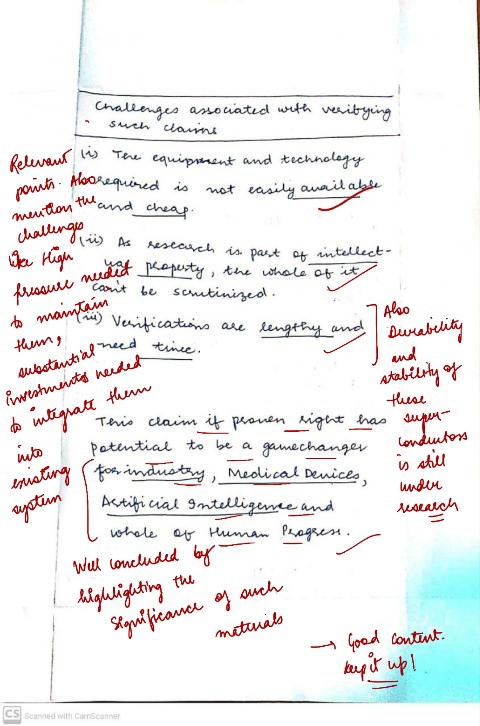 Challenges associated with verifying
such claims
(i) The equipment and technology
required is not easily available
and cheap.
(ii) As research is part of intellect-
ual property, the whole of it
can't be scrutinized.
(iii) Verifications are lengthy and
need time.
This claim if proven right has
potential to be a gamechanger
for industry, Medical Devices,
Artificial Intelligence and
whole of Human Progress.
Relevant
points. Also
mention the
challenges
like High
pressure needed
to maintain
them,
substantial
investments needed
to integrate them
into
existing
system
Also
Durability
and
stability of
these
super-
conductors
is still
under
research
Well concluded by
highlighting the
significance of such
materials
→ Good content.
Keep it up!
CS Scanned with CamScanner